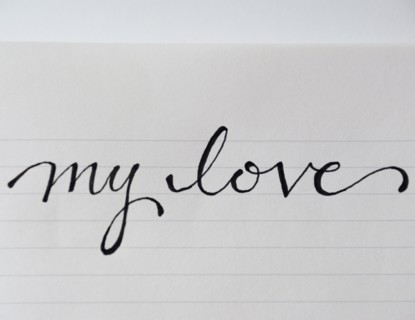 my love